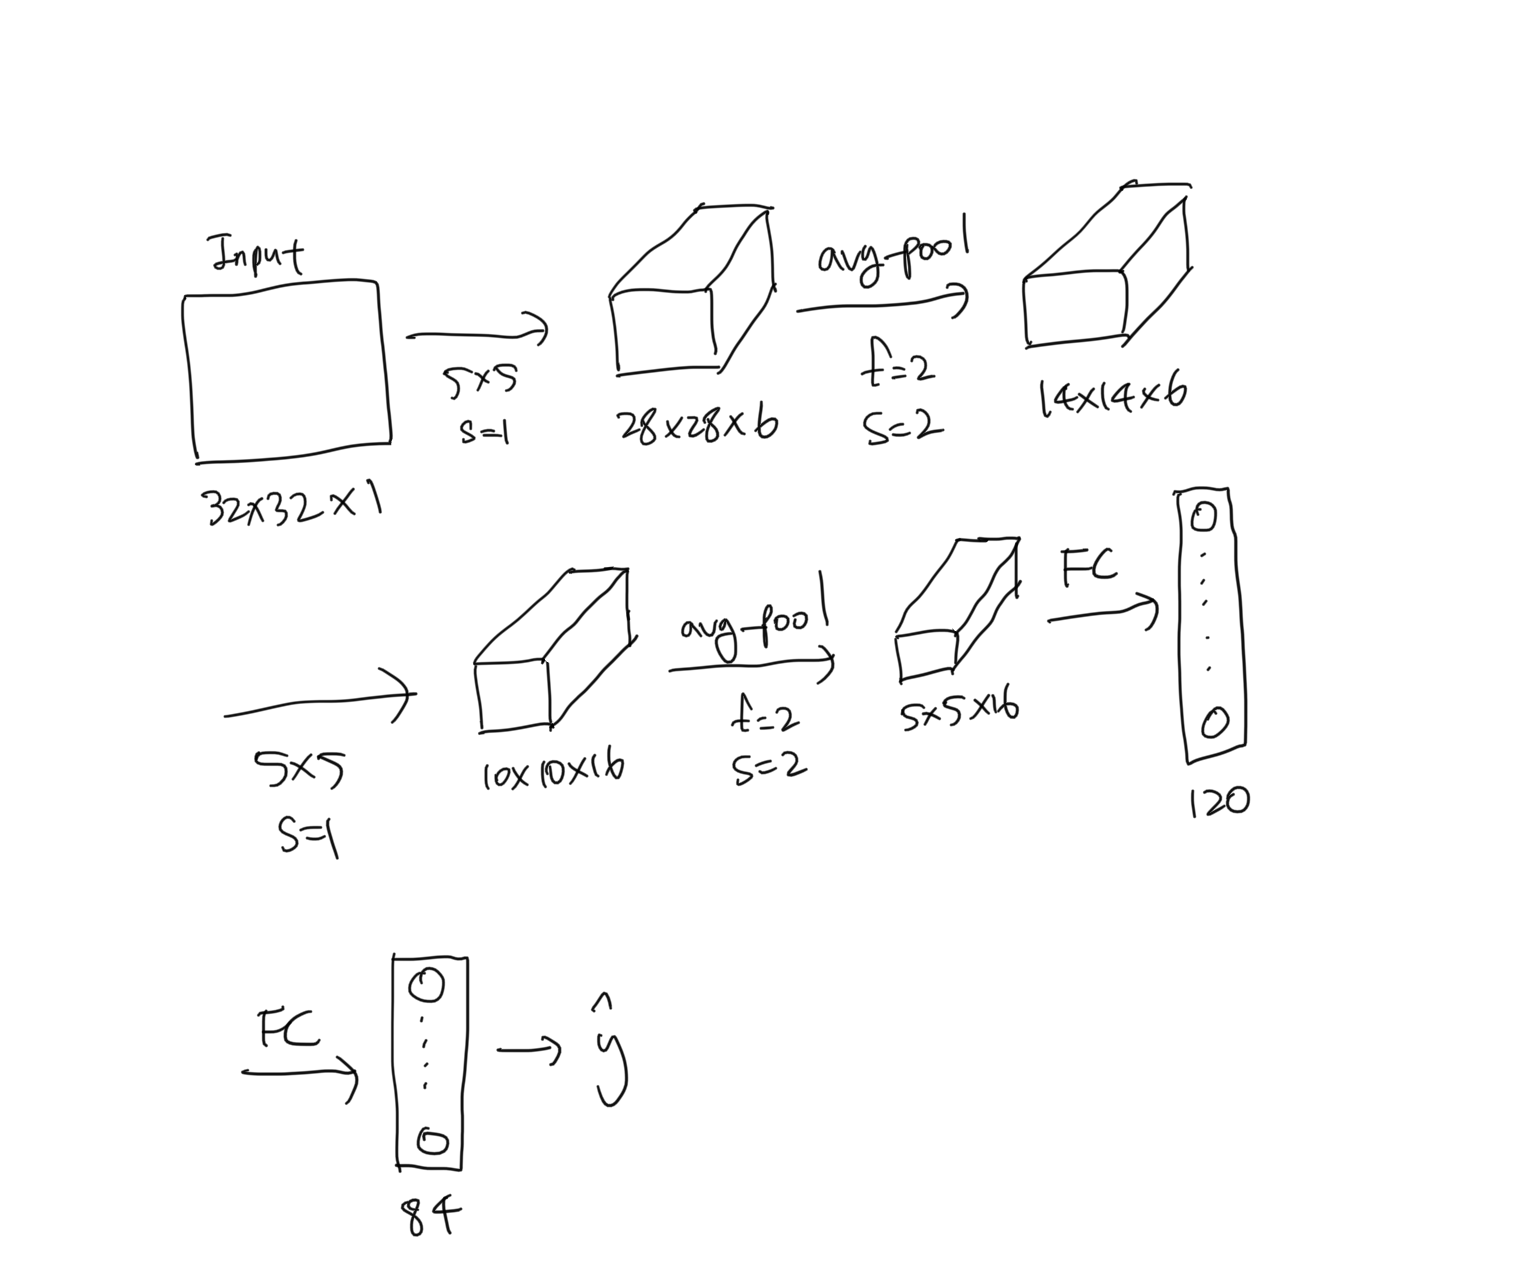 Input
32x32x1
5x5
s=1
28x28x6
avg-pool
f=2
s=2
14x14x6
5x5
s=1
10x10x16
avg-pool
f=2
s=2
5x5x16
FC
120
FC
84
ŷ